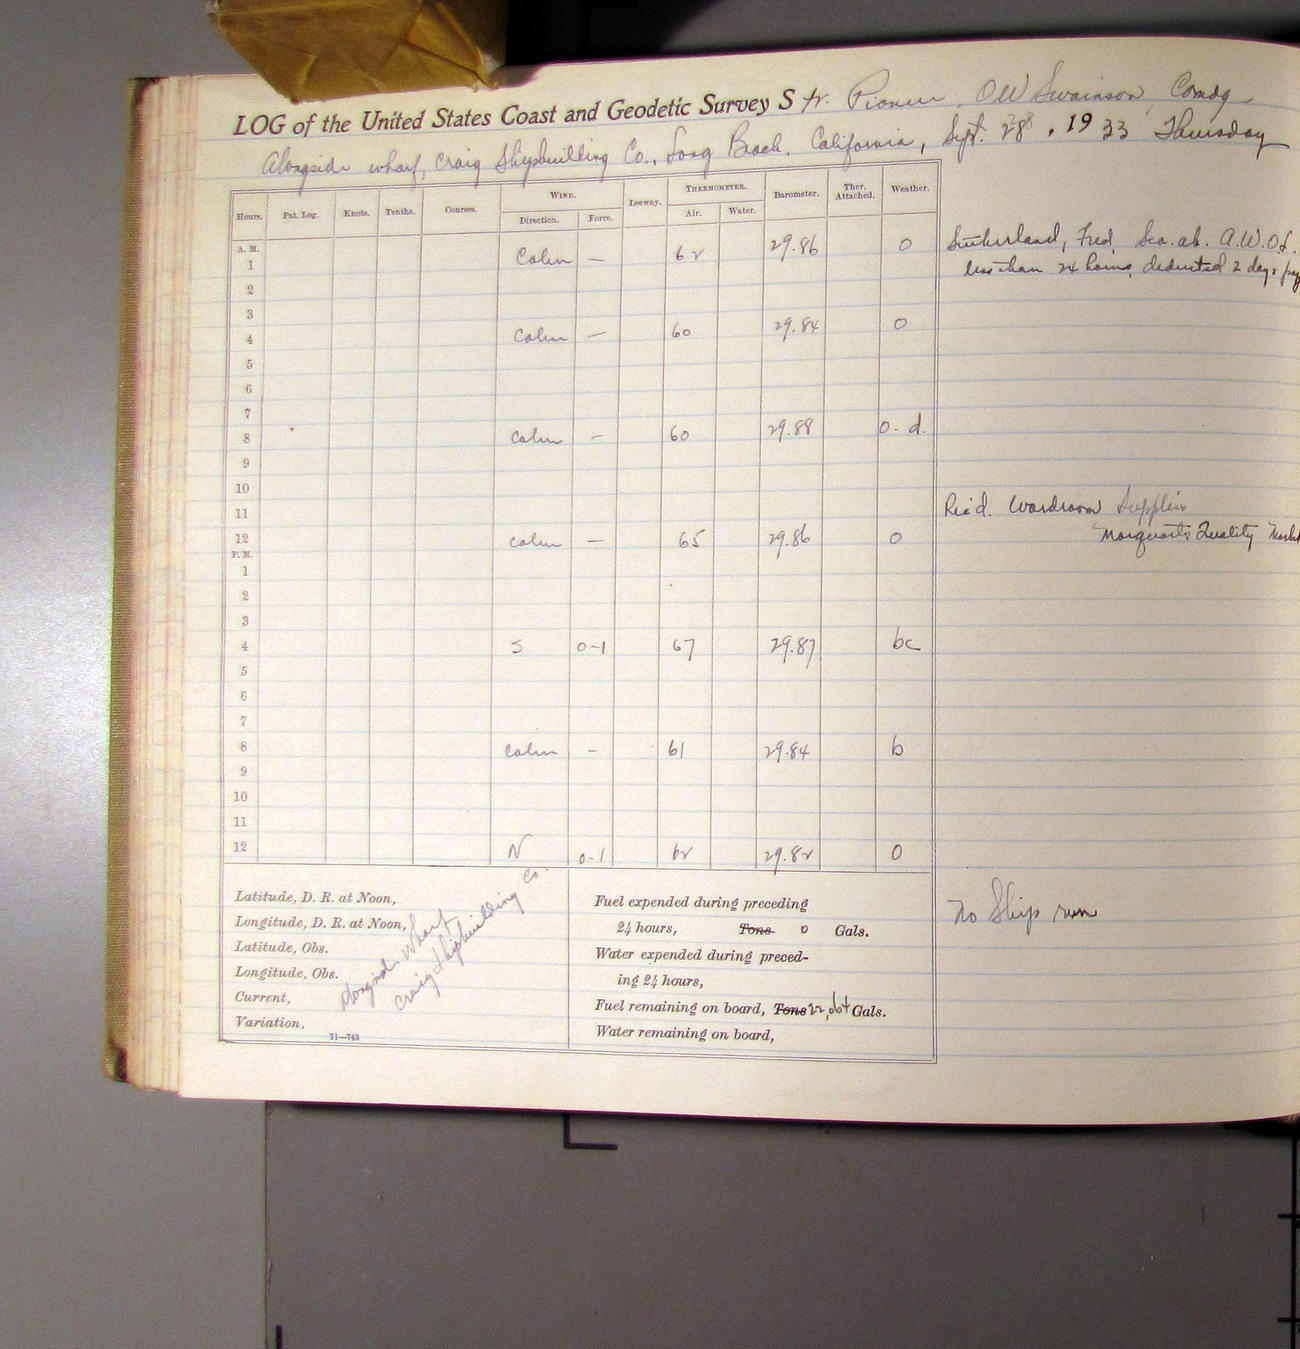 LOG of the United States Coast and Geodetic Survey Str. Pioneer, OW Swainson, Comdg
Alongside wharf, Craig Shipbuilding Co., Long Beach, California, Sept. 28, 1933 Thursday
Hours. Pat. Log. Knots. Tenths. Courses. WIND. Leeway. THERMOMETER. Barometer. Ther. Attached. Weather.
Direction. Force. Air. Water.
A. M.
1 Calm — 62 29.86 o
2
3
4 Calm — 60 29.84 o
5
6
7
8 Calm — 60 29.88 o-d.
9
10
11
12 Calm — 65 29.86 o
P. M.
1
2
3
4 S 0-1 67 29.87 bc
5
6
7
8 Calm - 61 29.84 b
9
10
11
12 N 0-1 62 29.82 o
Sutherland, Fred, Sea. a.b. A.W.O.L.
less than 24 hours, deducted 2 days pay
Rec'd. Wardroom Supplies
Marquarts Quality
No Ship run
Latitude, D. R. at Noon,
Longitude, D. R. at Noon,
Latitude, Obs.
Longitude, Obs.
Current,
Variation,
Alongside Wharf
Craig Shipbuilding Co.
11—743
Fuel expended during preceding
24 hours, Tons o Gals.
Water expended during preced-
ing 24 hours,
Fuel remaining on board, Tons Gals.
Water remaining on board,